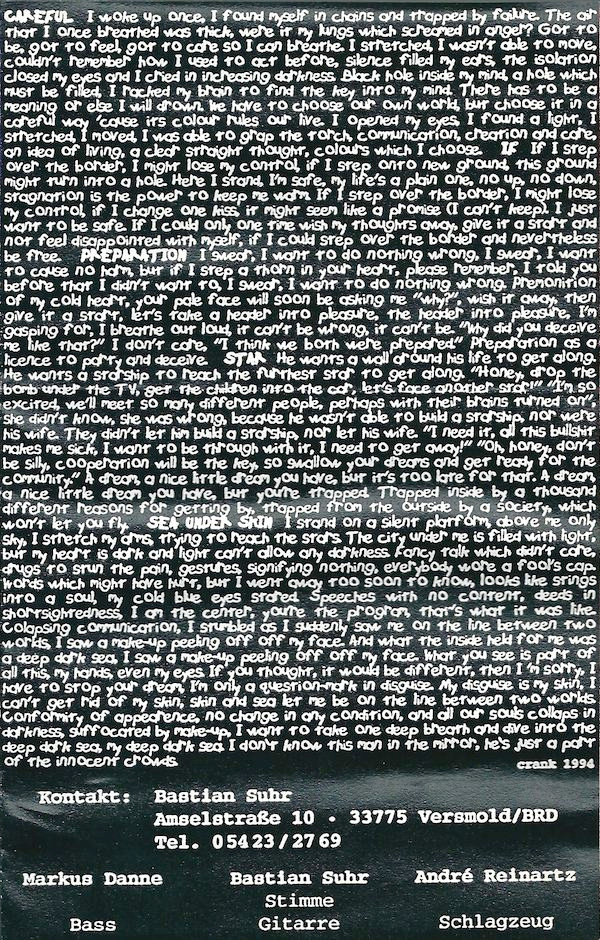 CAREFUL I woke up once, I found myself in chains and trapped by failure. The air
that I once breathed was thick, were it my lungs which screamed in anger? Got to
be, got to feel, got to care so I can breathe. I stretched, I wasn't able to move,
couldn't remember how I used to act before, silence filled my ears, the isolation
closed my eyes and I cried in increasing darkness. Black hole inside my mind, a hole which
must be filled, I racked my brain to find the key into my mind. There has to be a
meaning or else I will drown. We have to choose our own world, but choose it in a
careful way 'cause it's colour rules our live. I opened my eyes, I found a light, I
stretched, I moved, I was able to grap the torch, communication, creation and care,
an idea of living, a clear straight thought, colours which I choose. IF If I step
over the border, I might lose my control, if I step onto new ground, this ground
might turn into a hole. Here I stand, I'm safe, my life's a plain one, no up, no down,
stagnation is the power to keep me warm. If I step over the border, I might lose
my control, if I change one kiss, it might seem like a promise (I can't keep). I just
want to be safe. If I could only, one time wish my thoughts away, give it a start and
not feel disappointed with myself, if I could step over the border and nevertheless
be free. PREPARATION I swear, I want to do nothing wrong, I swear, I want
to cause no harm, but if I step a thorn in your heart, please remember, I told you
before that I didn't want to, I swear, I want to do nothing wrong. Premonition
of my cold heart, your pale face will soon be asking me "why?", wish it away, then
give it a start, let's take a header into pleasure, the header into pleasure, I'm
gasping for, I breathe out loud, it can't be wrong, it can't be. "Why did you deceive
me like that?" I don't care, "I think we both were prepared" Preparation as a
licence to party and deceive. STAR He wants a wall around his life to get along.
He wants a starship to reach the furthest star to get along. "Honey, drop the
bomb under the TV, get the children into the car, let's face another star!" "I'm so
excited, we'll meet so many different people, perhaps with their brains turned on",
she didn't know, she was wrong, because he wasn't able to build a starship, nor were
his wife. They didn't let him build a starship, nor let his wife. "I need it, all this bullshit
makes me sick, I want to be through with it, I need to get away!" "Oh, honey, don't
be silly, cooperation will be the key, so swallow your dreams and get ready for the
community." A dream, a nice little dream you have, but it's too late for that. A dream
a nice little dream you have, but you're trapped. Trapped inside by a thousand
different reasons for getting by, trapped from the outside by a society, which
won't let you fly. SEA UNDER SKIN I stand on a silent platform, above me only
sky, I stretch my arms, trying to reach the stars. The city under me is filled with light,
but my heart is dark and light can't allow any darkness. Fancy talk which didn't care,
drugs to stun the pain, gestures, signifying nothing, everybody wore a fool's cap.
Words which might have hurt, but I went away too soon to know, looks like strings
into a soul, my cold blue eyes stared. Speeches with no content, deeds in
shortsightedness, I am the center, you're the program, that's what it was like.
Colapsing communication, I stumbled as I suddenly saw me on the line between two
worlds, I saw a make-up peeling off off my face. And what the inside held for me was
a deep dark sea, I saw a make-up peeling off off my face. What you see is part of
all this, my hands, even my eyes. If you thought, it would be different, then I'm sorry, I
have to stop your dream, I'm only a question-mark in disguise. My disguise is my skin, I
can't get rid of my skin, skin and sea let me be on the line between two worlds.
Conformity of appearence, no change in any condition, and all our souls collaps in
darkness, suffocated by make-up, I want to take one deep breath and dive into the
deep dark sea, my deep dark sea. I don't know this man in the mirror, he's just a part
of the innocent crowds.
crank 1994
Kontakt: Bastian Suhr
Amselstraße 10 · 33775 Versmold/BRD
Tel. 05423/2769
Markus Danne Bastian Suhr André Reinartz
Stimme
Bass Gitarre Schlagzeug